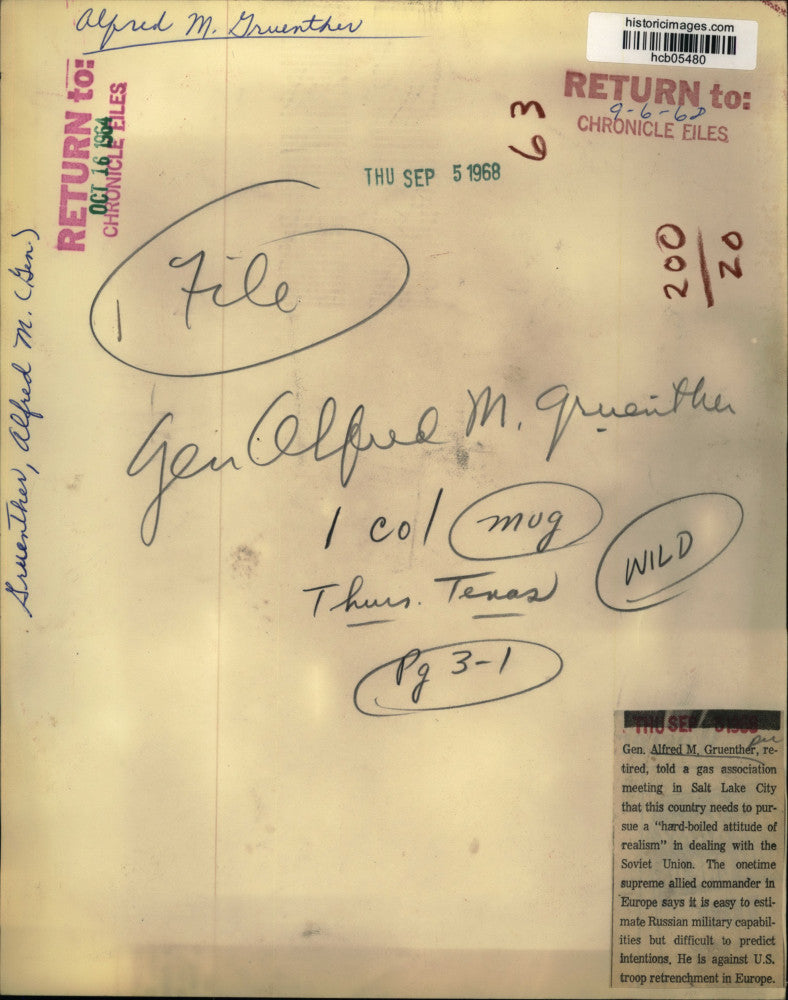 Alfred M. Gruenther
historicimages.com
hcb05480
RETURN to:
OCT 16 1964
CHRONICLE FILES
RETURN to:
9-6-68
CHRONICLE FILES
63
THU SEP 5 1968
200
20
File
Gruenther, Alfred M. (Gen.)
Gen Alfred M. Gruenther
1 col mug
WILD
Thurs. Texas
Pg 3-1
THU SEP 5 1968
Gen. Alfred M. Gruenther, re-
tired, told a gas association
meeting in Salt Lake City
that this country needs to pur-
sue a "hard-boiled attitude of
realism" in dealing with the
Soviet Union. The onetime
supreme allied commander in
Europe says it is easy to esti-
mate Russian military capabil-
ities but difficult to predict
intentions. He is against U.S.
troop retrenchment in Europe.